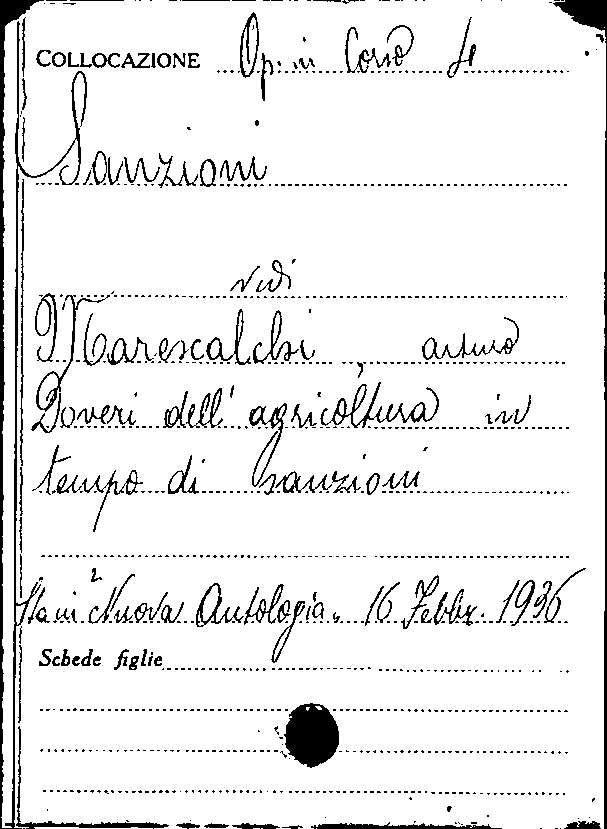 COLLOCAZIONE Op. in Corso
Sanzioni
vedi
Marescalchi, arturo
Doveri dell'agricoltura in
tempo di sanzioni
Sta in "Nuova Antologia" 16 Febbr. 1936
Schede figlie